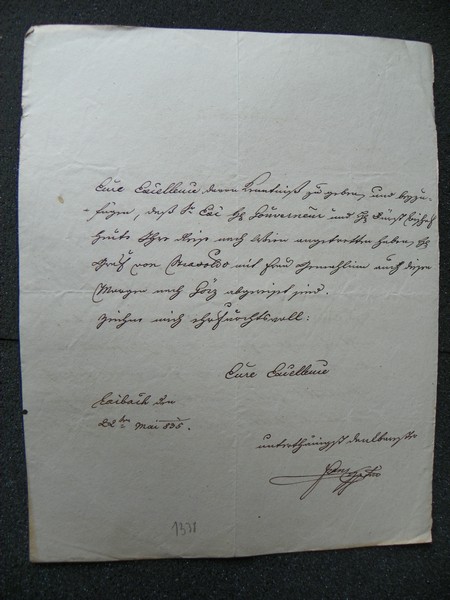 Eure Excellence davon Kenntniß zu geben, und beyzu-
fügen, daß Sr Exc H. Gouverneur und H. Fürst Bischof
heute Ihre Reise nach Wien angetretten haben, H.
Graf von mit Frau Gemahlin auch diesen
Morgen nach Görz abgereist sind.
Zeichne mich ehrfurchtsvoll:
Eure Excellence
Laibach den
22ten Mai 835.
unterthänigst dankbarster
1331